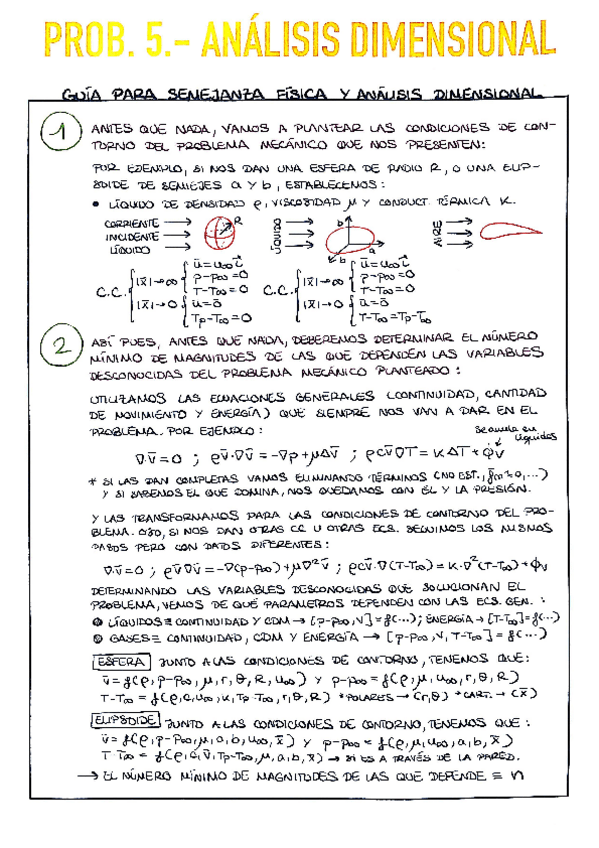 PROB. 5.- ANÁLISIS DIMENSIONAL
GUÍA PARA SEMEJANZA FÍSICA Y ANÁLISIS DIMENSIONAL
1 ANTES QUE NADA, VAMOS A PLANTEAR LAS CONDICIONES DE CON-
TORNO DEL PROBLEMA MECÁNICO QUE NOS PRESENTEN:
POR EJEMPLO, SI NOS DAN UNA ESFERA DE RADIO R, O UNA ELIP-
SOIDE DE SEMIEJES a Y b, ESTABLECEMOS:
• LÍQUIDO DE DENSIDAD ρ, VISCOSIDAD μ Y CONDUCT. TÉRMICA K.
CORRIENTE
INCIDENTE
LÍQUIDO
R
LÍQUIDO
b
a
b
AIRE
C.C. |x̄|→∞ ū=u∞ī
p-p∞=0
T-T∞=0
|x̄|→0 ū=0
Tp-T∞=0
C.C. |x̄|→∞ ū=u∞ī
p-p∞=0
T-T∞=0
|x̄|→0 ū=0
T-T∞=Tp-T∞
2 ASÍ PUES, ANTES QUE NADA, DEBEREMOS DETERMINAR EL NÚMERO
MÍNIMO DE MAGNITUDES DE LAS QUE DEPENDEN LAS VARIABLES
DESCONOCIDAS DEL PROBLEMA MECÁNICO PLANTEADO:
UTILIZAMOS LAS ECUACIONES GENERALES (CONTINUIDAD, CANTIDAD
DE MOVIMIENTO Y ENERGÍA) QUE SIEMPRE NOS VAN A DAR EN EL
PROBLEMA. POR EJEMPLO:
Se anula en
líquidos
∇v̄=0 ; ρv̄·∇v̄=-∇p+μΔv̄ ; ρcv̄∇T=KΔT+ϕv
* SI LAS DAN COMPLETAS VAMOS ELIMINANDO TÉRMINOS (NO EST.,
Y SI SABEMOS EL QUE DOMINA, NOS QUEDAMOS CON ÉL Y LA PRESIÓN.
Y LAS TRANSFORMAMOS PARA LAS CONDICIONES DE CONTORNO DEL PRO-
BLEMA. OJO, SI NOS DAN OTRAS CC U OTRAS ECS. SEGUIMOS LOS MISMOS
PASOS PERO CON DATOS DIFERENTES:
∇v̄=0 ; ρv̄∇v̄=-∇(p-p∞)+μ∇²v̄ ; ρcv̄·∇(T-T∞)=K·∇²(T-T∞)+ϕv
DETERMINANDO LAS VARIABLES DESCONOCIDAS QUE SOLUCIONAN EL
PROBLEMA, VEMOS DE QUÉ PARÁMETROS DEPENDEN CON LAS ECS. GEN.:
LÍQUIDOS≡ CONTINUIDAD Y CDM → [p-p∞,v]=f(...); ENERGÍA→[T-T∞]=f(...)
GASES≡ CONTINUIDAD, CDM Y ENERGÍA → [p-p∞,v,T-T∞]=f(...)
ESFERA JUNTO A LAS CONDICIONES DE CONTORNO, TENEMOS QUE:
v̄=f(ρ,p-p∞,μ,r,θ,R,u∞) Y p-p∞=f(ρ,μ,u∞,r,θ,R)
T-T∞=f(ρ,c,u∞,K,Tp-T∞,r,θ,R) *POLARES→(r,θ) *CART.→(x̄)
ELIPSOIDE JUNTO A LAS CONDICIONES DE CONTORNO, TENEMOS QUE:
v̄=f(ρ,p-p∞,μ,a,b,u∞,x̄) Y p-p∞=f(ρ,μ,u∞,a,b,x̄)
T-T∞=f(ρ,c,v̄,Tp-T∞,μ,a,b,x̄)→ SI ES A TRAVÉS DE LA PARED.
→ EL NÚMERO MÍNIMO DE MAGNITUDES DE LAS QUE DEPENDE ≡ n